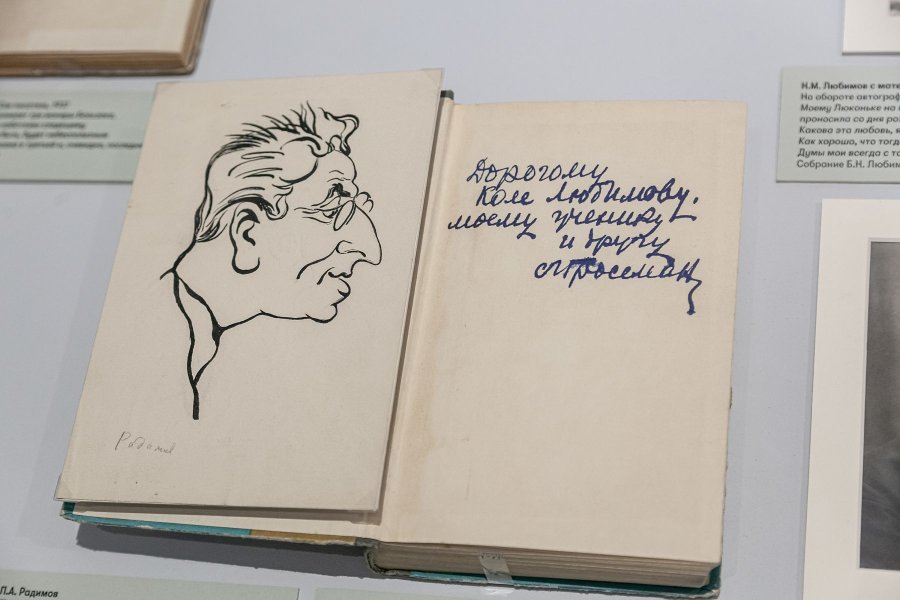 Н.М. Любимов с мате
На обороте автограф
Моему Люконьке на
проносила со дня ро
Какова эта любовь, я
Как хорошо, что тогд
Думы мои всегда с то
Собрание Б.Н. Любим
Дорогому
Коле Любимову,
моему ученику
и другу
Гроссман
Радимов
П.А. Радимов